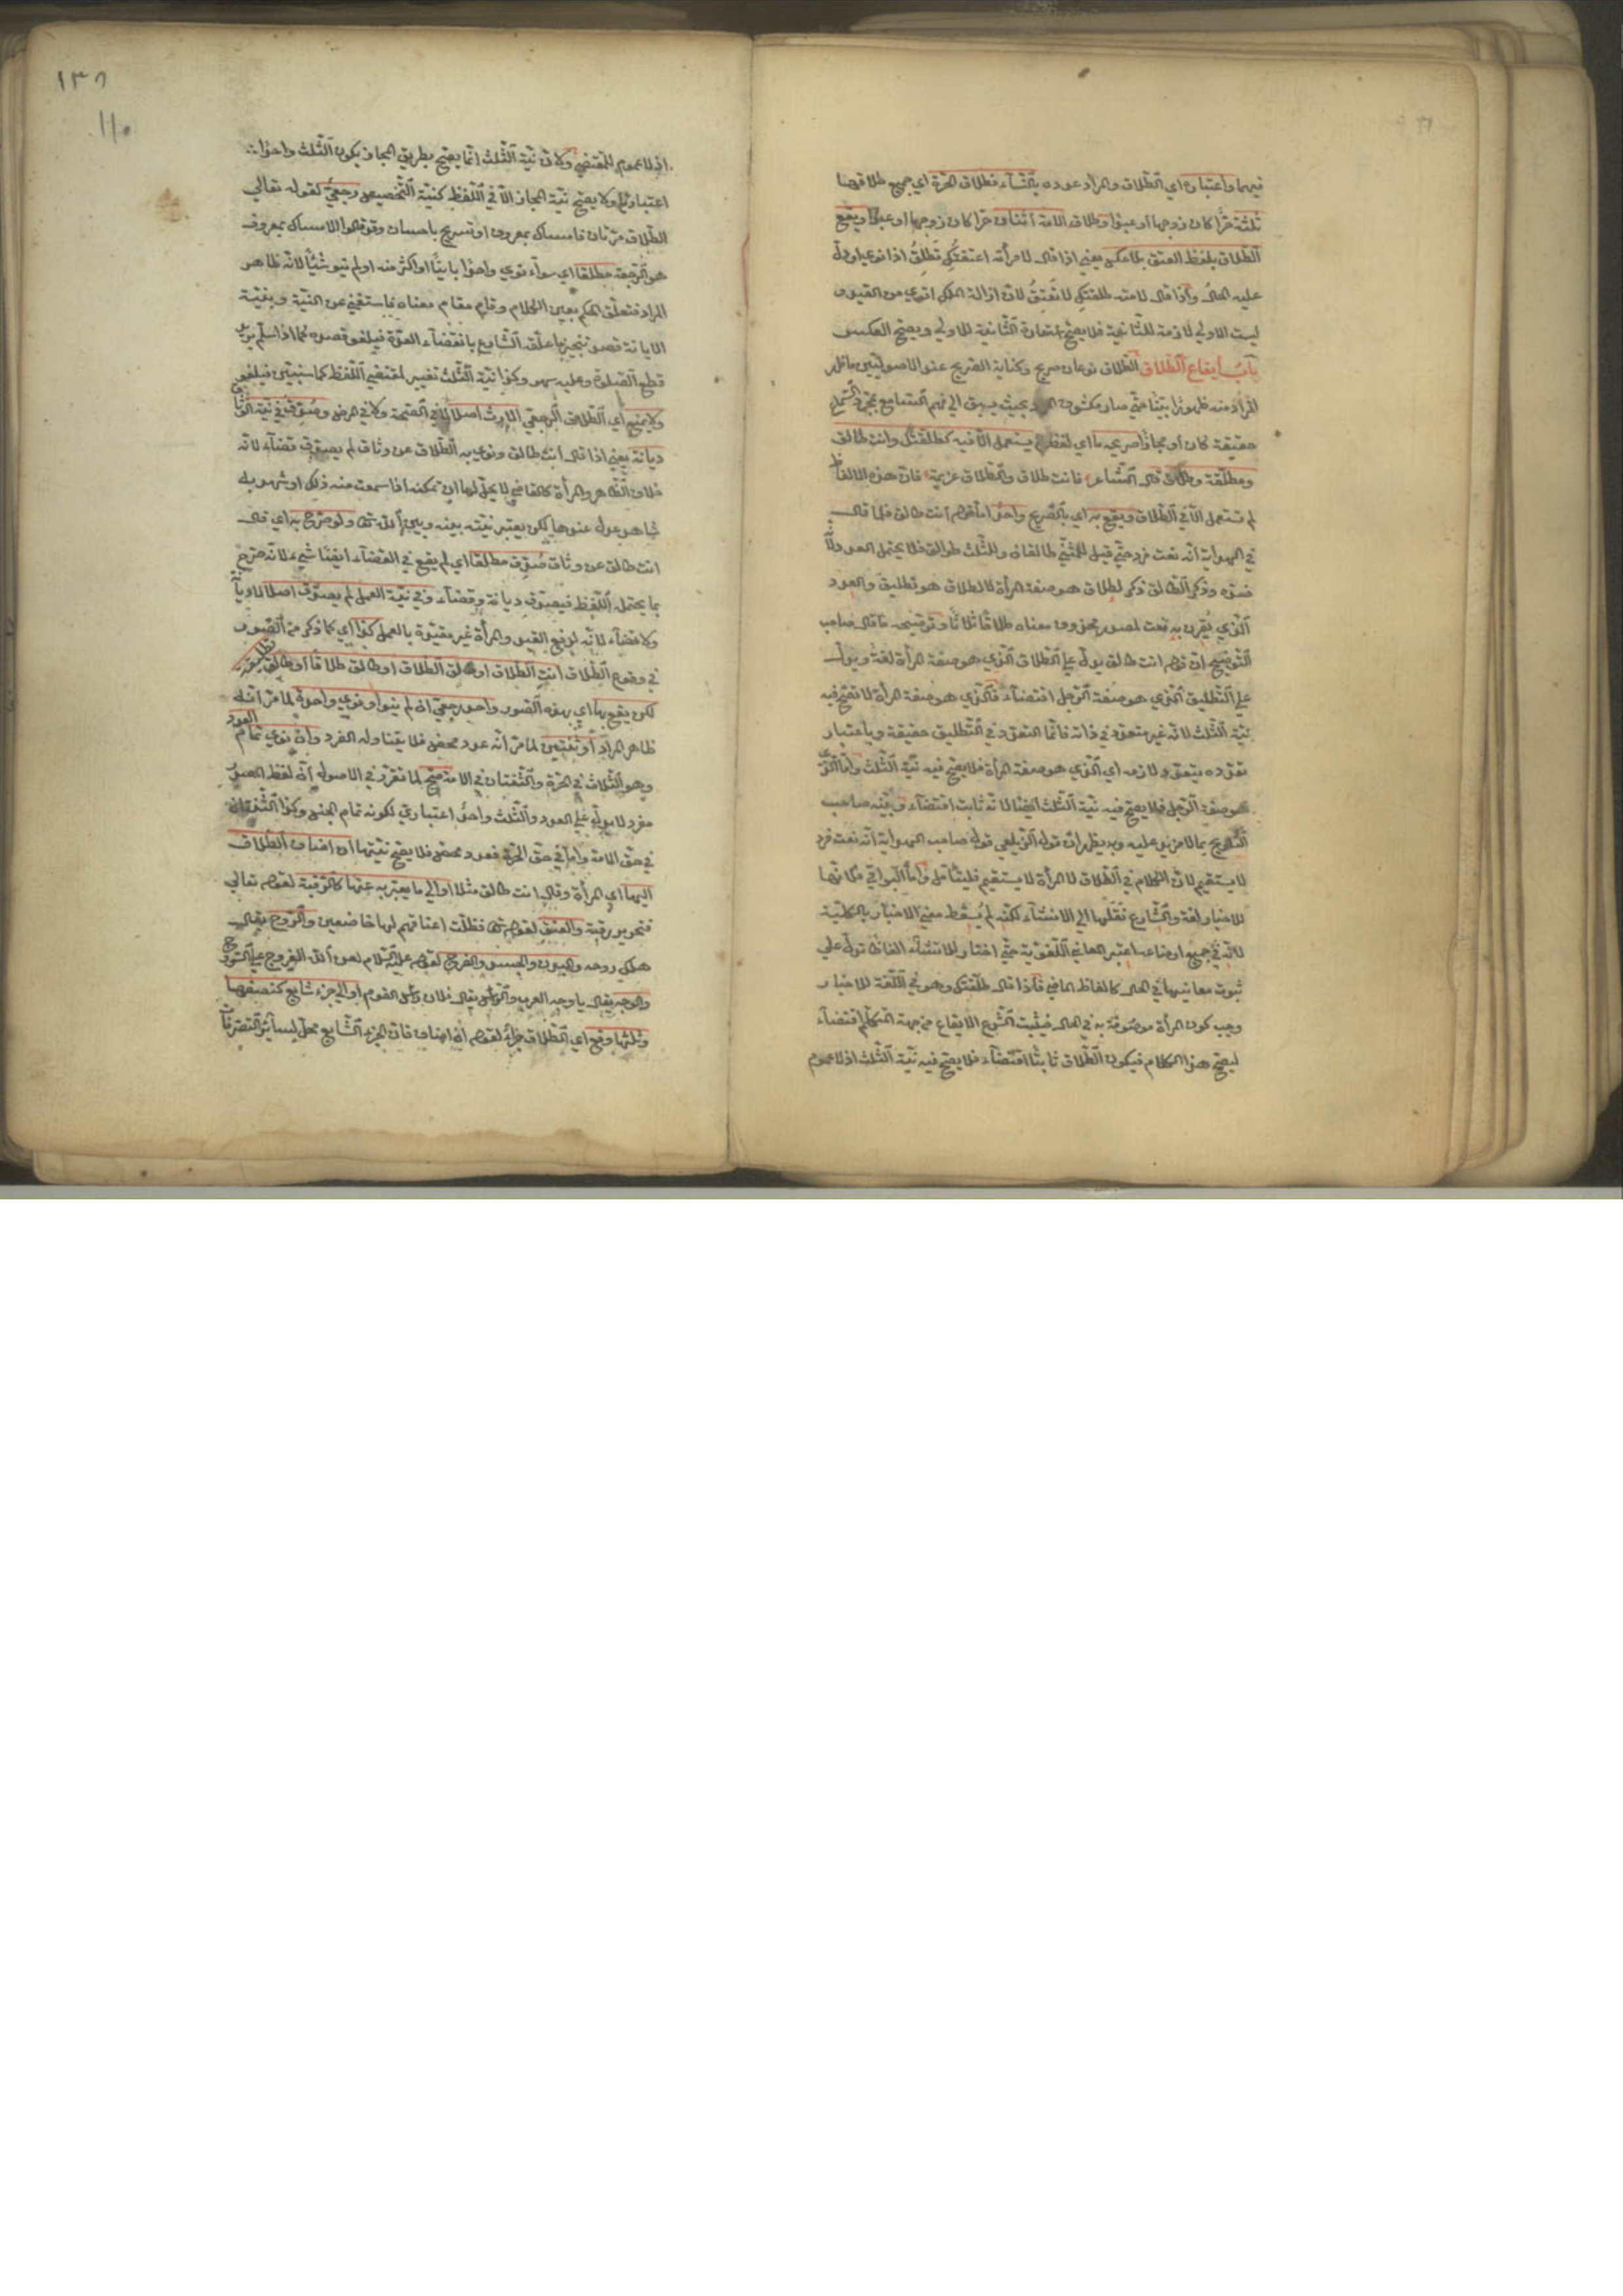 فيهما واعتباره اي الطلاق والمراد عدده بالنساء فطلاق الحرة اي جميع طلاقها
ثلثة حرا كان زوجها او عبدا وطلاق الامة اثنان حرا كان زوجها او عبدا ويقع
الطلاق بلفظ العتق بلا عكس يعني اذا قال لامرأته اعتقتك تطلق اذا نوي او دل
عليه الحال واذا قال لامته طلقتك لا تعتق لان ازالة الملك اقوي من القيد و
ليست الاولي لازمة للثانية فلا يصح استعارة الثانية للاولي ويصح العكس
باب ايقاع الطلاق الطلاق نوعان صريح وكناية الصريح عند الاصوليين ما ظهر
المراد منه ظهورا بينا حتي صار مكشوف المراد بحيث يسبق الي فهم السامع بمجرد السماع
حقيقة كان او مجازا صريحه ما اي لفظ لم يستعمل الا فيه كطلقتك وانت طالق
ومطلقة وطلاق قال الشاعر فانت طلاق والطلاق عزيمة فان هذه الالفاظ
لم تستعمل الا في الطلاق ويقع به اي بالصريح واحدا اما قولهم انت طالق فلما قال
في الهداية انه نعت فرد حتي قيل للمثني طالقان وللثلث طوالق فلا يحتمل العدد لانه
ضده وذكر الطالق ذكر لطلاق هو صفة المرأة لا لطلاق هو تطليق والعدد
الذي يقرن به نعت لمصدر محذوف معناه طلاقا ثلاثا وتوضيحه ما قال صاحب
التوضيح ان قولهم انت طالق يدل علي الطلاق الذي هو صفة المرأة لغة ويدل
علي التطليق الذي هو صفة الرجل اقتضاء فالذي هو صفة المرأة لا تصح فيه
نية الثلث لانه غير متعدد في ذاته فانما التعدد في التطليق حقيقة وباعتبار
تعدده يتعدد لازمه اي الذي هو صفة المرأة فلا يصح فيه نية الثلث واما الذي
هو صفة الرجل فلا يصح فيه نية الثلث ايضا لانه ثابت اقتضاء وبينه صاحب
التلويح بما لا مزيد عليه وبه يظهر ان قوله الزيلعي قوله صاحب الهداية انه نعت فرد
لا يستقيم لان الكلام في الطلاق لا المرأة لا يستقيم فليتأمل واما البواقي فكانها
للاخبار لغة والشارع نقلها الي الانشاء لكنه لم يسقط معني الاخبار بالكلية
لانه في جميع اوضاعه اعتبر المعاني اللغوية حتي اختار للانشاء الفاظا تدل علي
ثبوت معانيها في الحال كالفاظ الماضي فاذا قال طلقتك وهو في اللغة للاخبار
وجب كون المرأة موصوفة به في الحال فيثبت الشرع الايقاع من جهة المتكلم اقتضاء
ليصح هذا الكلام فيكون الطلاق ثابتا اقتضاء فلا يصح فيه نية الثلث اذ لا عموم
١٣٨
110
اذ لا عموم للمقتضي ولان نية الثلث انما يصح بطريق المجاز بكون الثلث واحدا
اعتباريا ولا يصح نية المجاز الا في اللفظ كنية التخصيص رجعي لقوله تعالي
الطلاق مرتان فامساك بمعروف او تسريح باحسان وقد قالوا الامساك بمعروف
هو الرجعة مطلقا اي سواء نوي واحدا باينا او اكثر منه او لم ينو شيئا لانه ظاهر
المراد فتعلق الحكم بعين الكلام وقام مقام معناه فاستغني عن النية وبنية
الابانة قصد تنجيز ما علقه الشارع بانقضاء العدة فيلغو قصده كما اذا سلم يريد
قطع الصلوة وعليه سهو وكذا نية الثلث تغيير لمقتضي اللفظ كما سيتبين فيلغو
ولا يمنع اي الطلاق الرجعي الارث اصلا لا في الصحة ولا في المرض وصدق في نية الوثاق
ديانة يعني اذا قال انت طالق ونوي به الطلاق عن وثاق لم يصدق قضاء لانه
خلاف الظاهر والمرأة كالقاضي لا يحل لها ان تمكنه اذا سمعت منه ذلك او شهد به
شاهد عدل عندها لكن يعتبر نيته بينه وبين الله تعالي ولو صرح به اي قال
انت طالق عن وثاق صدق مطلقا اي لم يقع في القضاء ايضا شيء لانه صرح
بما يحتمل اللفظ فيصدق ديانة وقضاء وفي نية العمل لم يصدق اصلا لا ديانة
ولا قضاء لانه لرفع القيد والمرأة غير مقيدة بالعمل كذا اي كما ذكر من الصور
في وقوع الطلاق انت الطلاق او طالق الطلاق او طالق طلاقا او طالق تطليقة
لكن يقع بها اي بهذه الصور واحد رجعي ان لم ينو او نوي واحدة لما مر انه
ظاهر المراد او ثنتين لما مر انه عدد محض فلا يتناوله الفرد وان نوي تمام العدد
وهو الثلاث في الحرة والثنتان في الامة صح لما تقرر في الاصول ان لفظ المصدر
مفرد لا يدل علي العدد والثلث واحد اعتباري لكونه تمام الجنس وكذا الثنتان
في حق الامة واما في حق الحرة فعدد محض فلا يصح نيتها ان اضاف الطلاق
اليها اي المرأة وقال انت طالق مثلا او الي ما يعبر به عنها كالرقبة لقوله تعالي
فتحرير رقبة والعنق لقوله تعالي فظلت اعناقهم لها خاضعين والروح يقال
هلك روحه والبدن والجسد والفرج لقوله عليه السلام لعن الله الفروج علي السروج
والوجه يقال يا وجه العرب والرأس يقال فلان رأس القوم او الي جزء شايع كنصفها
وثلثها وقع اي الطلاق جزاء لقوله ان اضاف فان الجزء الشايع محل لسائر التصرفات